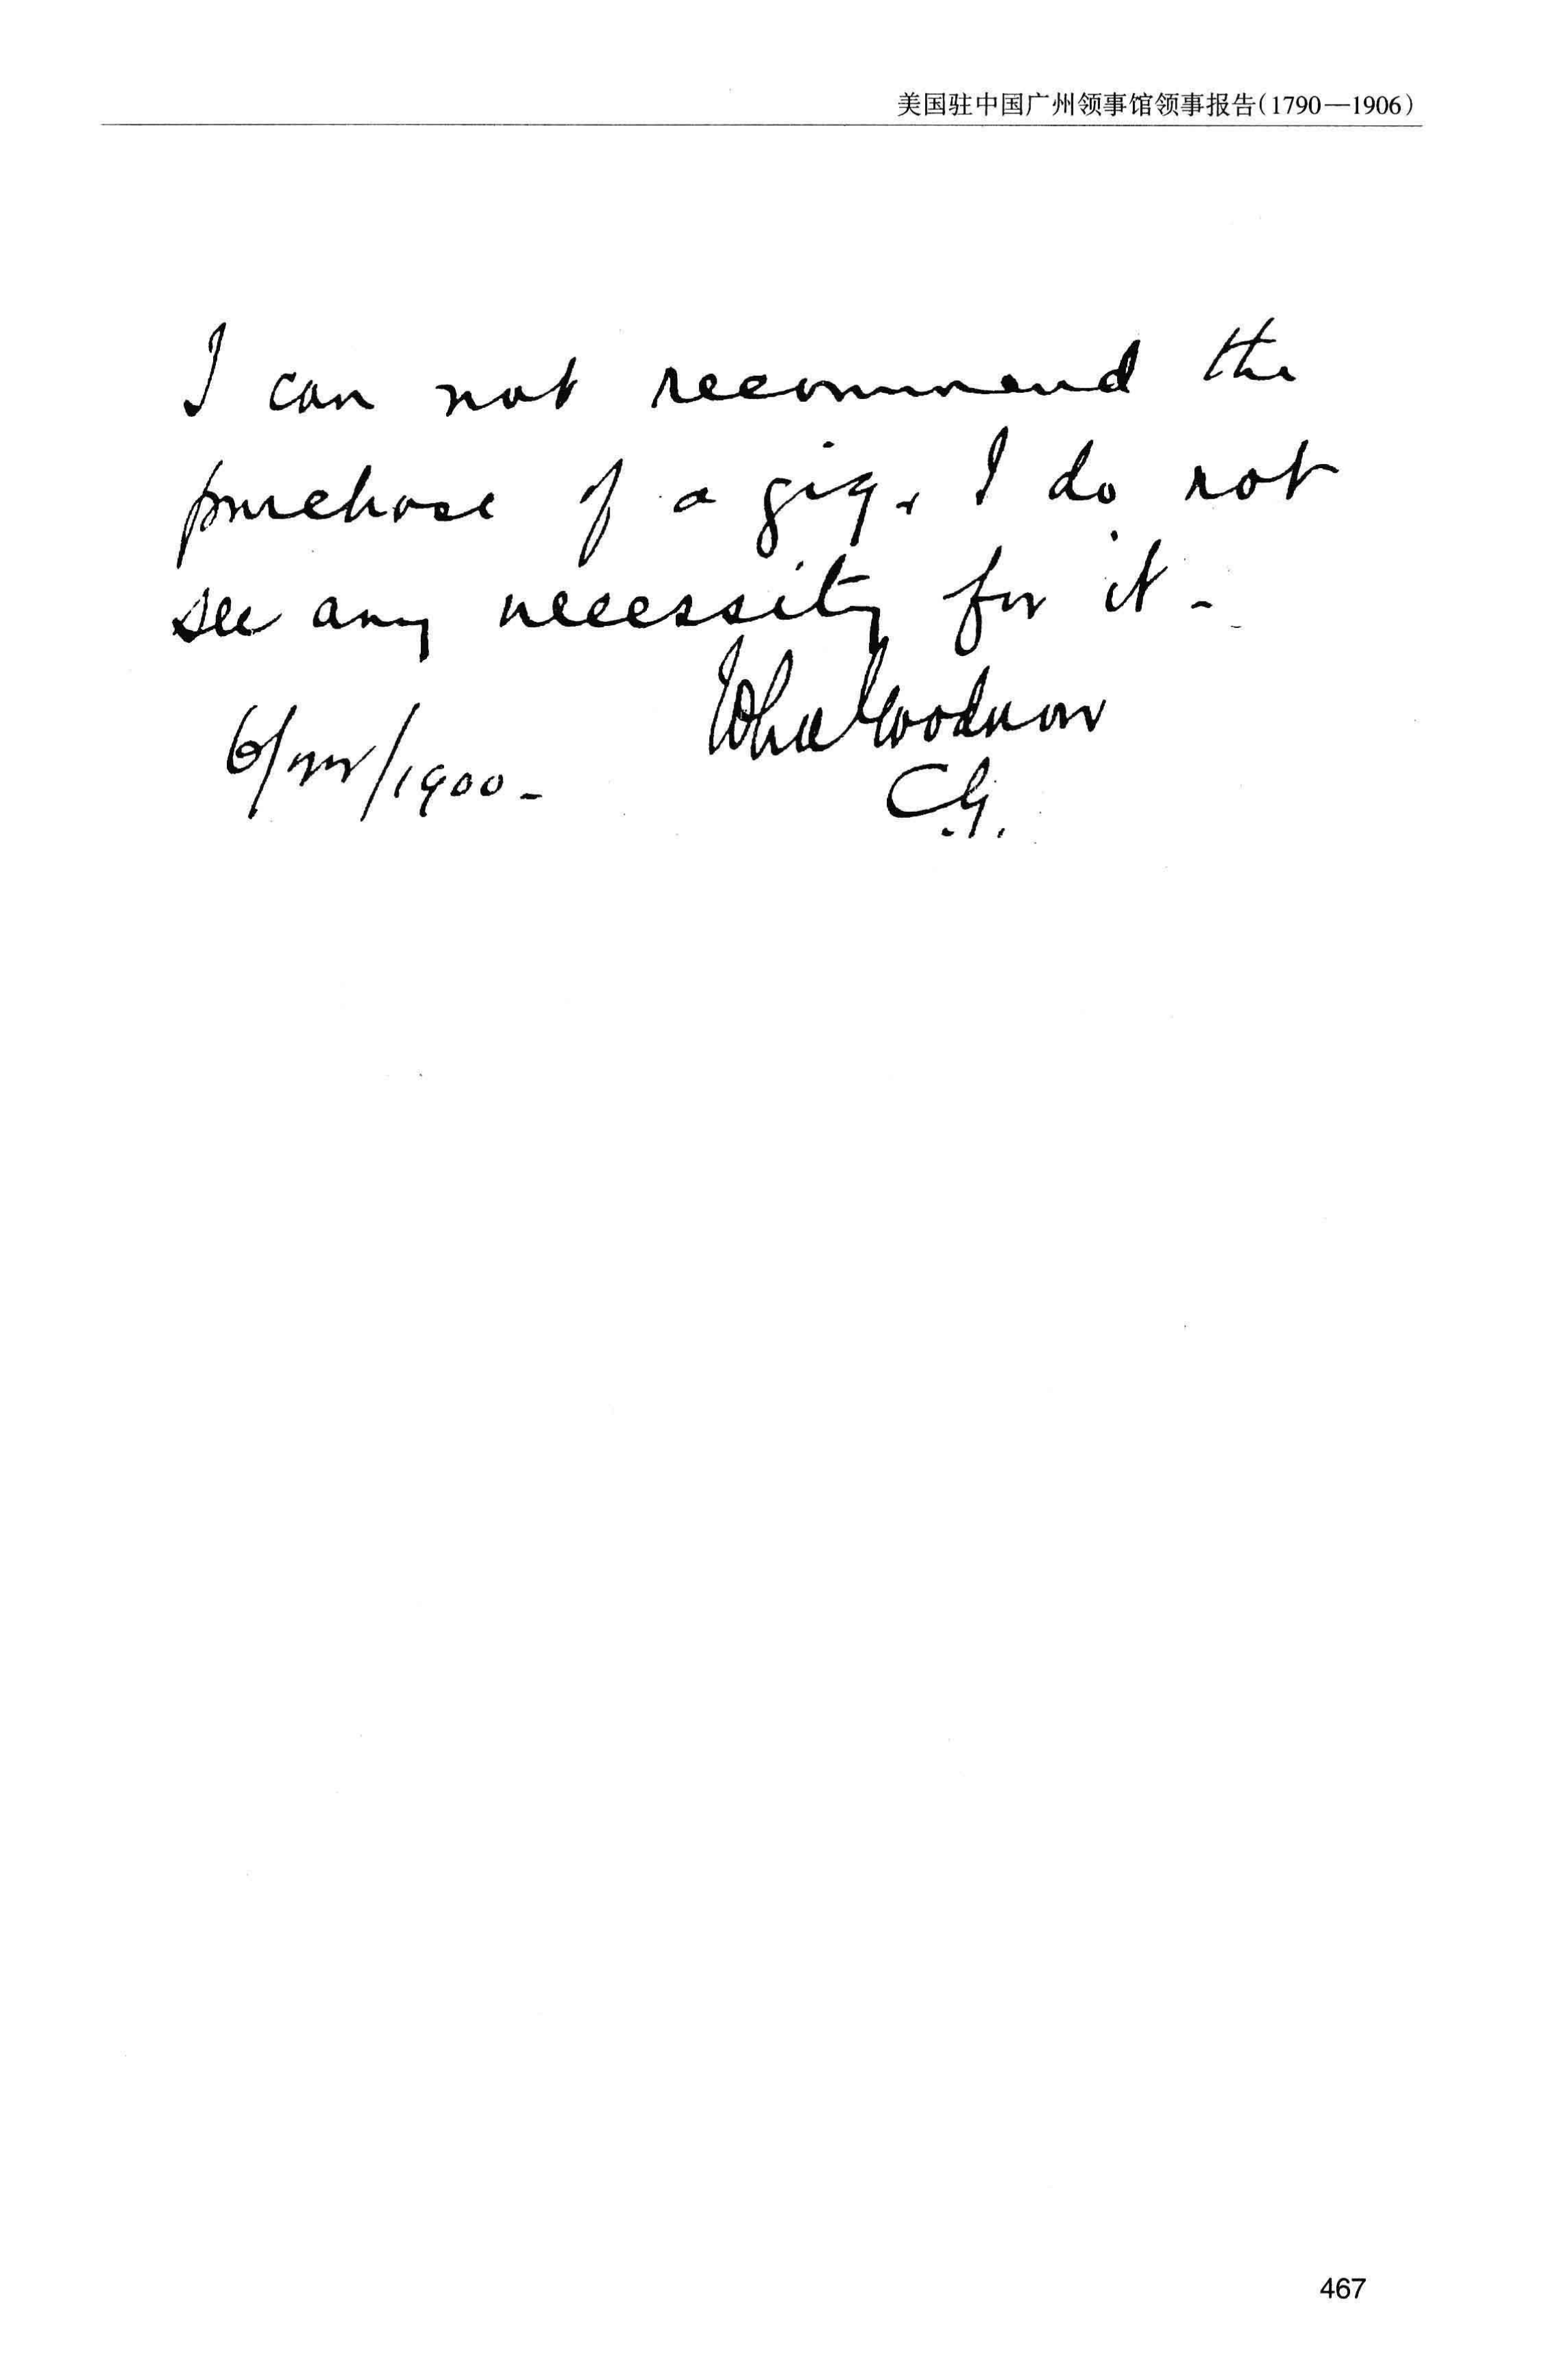 美国驻中国广州领事馆领事报告(1790—1906)
I can not recommend the
purchase of a gig. I do not
see any necessity for it -
John Goodnow
6/22/1900 -
C.G.
467